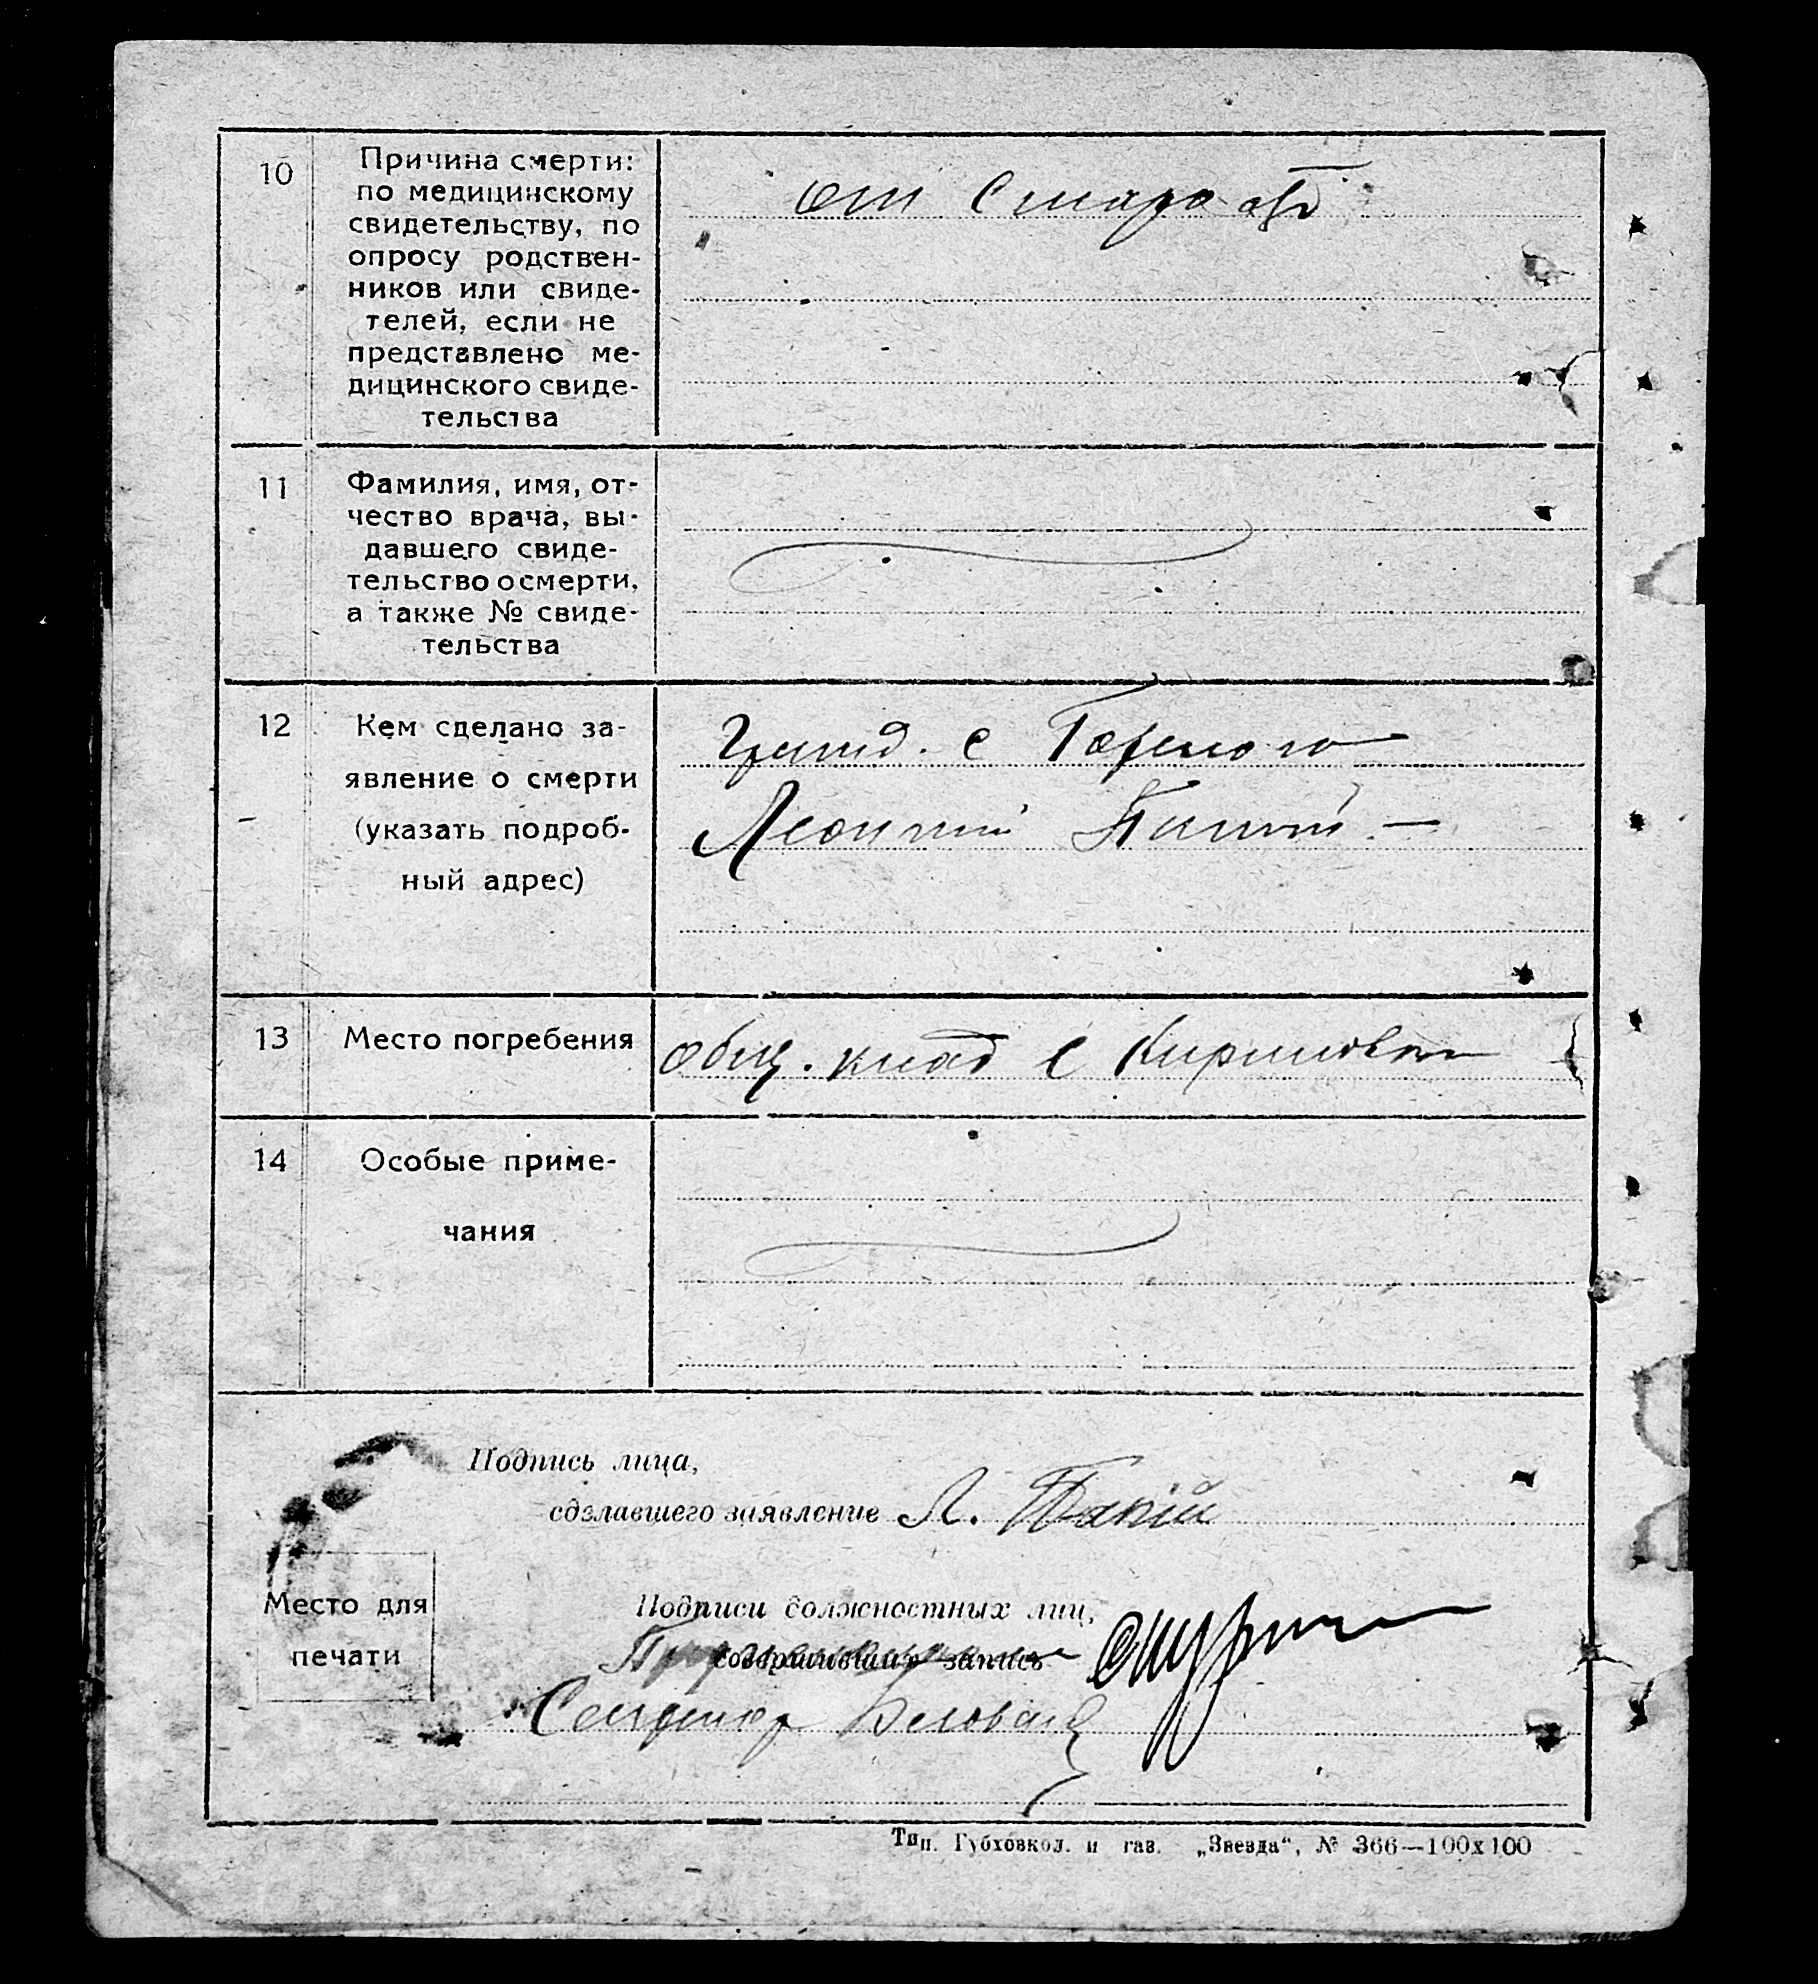 10
Причина смерти:
по медицинскому
свидетельству, по
опросу родствен-
ников или свиде-
телей, если не
представлено ме-
дицинского свиде-
тельства
от Старости
11
Фамилия, имя, от-
чество врача, вы-
давшего свиде-
тельство о смерти,
а также № свиде-
тельства
12
Кем сделано за-
явление о смерти
(указать подроб-
ный адрес)
с
Леонтий
13
Место погребения
общ. клад с
14
Особые приме-
чания
Подпись лица,
сделавшего заявление Л.
Место для
печати
Подписи должностных лиц,
совершивших запись
Секретар
Тип. Губховкол. и газ. „Звезда“, № 366—100х100